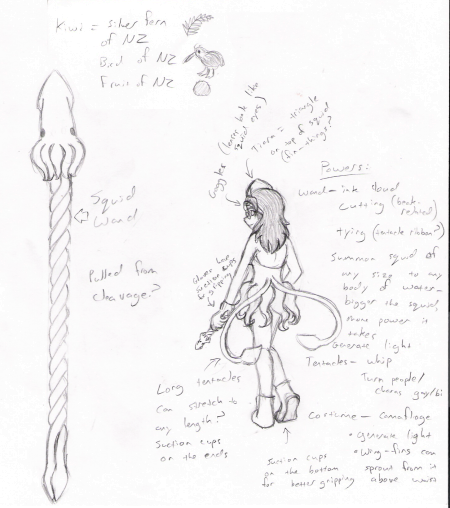 Kiwi = silver fern
of NZ
Bird of NZ
Fruit of NZ
Squid
Wand
Pulled from
cleavage?
Goggles (lenses look like
squid eyes)
Tiara = triangle
on top of squid
(fin-things?)
Gloves have
suction cups
for gripping
Long tentacles
can stretch to
any length?
Suction cups
on the ends
suction cups
on the bottom
for better gripping
Powers:
Wand - ink cloud
cutting (beak-
related)
tying (tentacle ribbon?)
Summon squid of
any size to any
body of water -
bigger the squid,
more power it
takes
Generate light
Tentacles - whip
Turn people/
chains gay/bi
Costume - camoflage
• generate light
• Wing-fins can
sprout from it
above waist